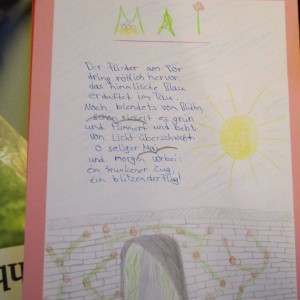 MAI
Der Flieder am Tor
dring rötlich hervor,
das himmlische Blau
erduftet im Tau.
Noch blendets von Blüten,
schon
es grün
und flimmert und bebt
von Licht überschwebt.
O seliger Mai
und morgen vorbei:
ein trunkener Zug,
ein blitzender Flug!